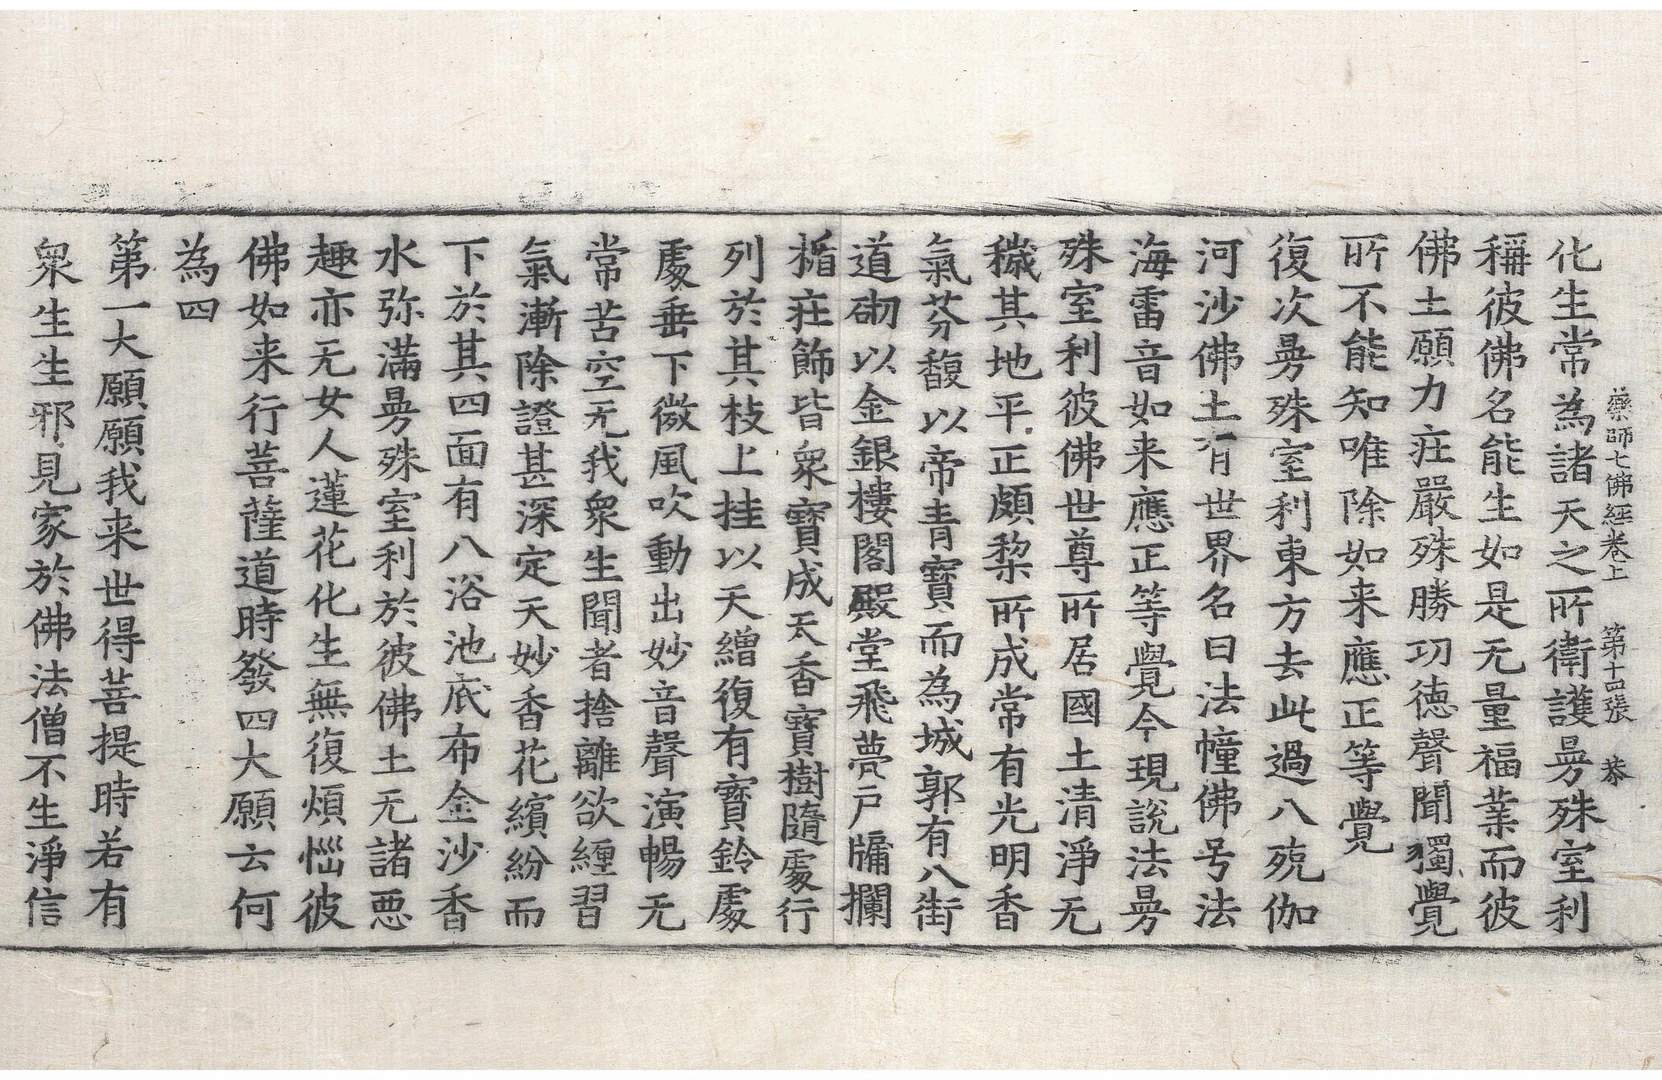 藥師七佛經卷上　第十四張　恭
化生常為諸天之所衛護曼殊室利
稱彼佛名能生如是无量福業而彼
佛土願力莊嚴殊勝功德聲聞獨覺
所不能知唯除如来應正等覺
復次曼殊室利東方去此過八殑伽
河沙佛土有世界名曰法幢佛号法
海雷音如来應正等覺今現說法曼
殊室利彼佛世尊所居國土清淨无
穢其地平正頗梨所成常有光明香
氣芬馥以帝青寶而為城郭有八街
道砌以金銀樓閣殿堂飛甍戶牖攔
楯莊飾皆衆寶成天香寶樹隨處行
列於其枝上挂以天繒復有寶鈴處
處垂下微風吹動出妙音聲演暢无
常苦空无我衆生聞者捨離欲纏習
氣漸除證甚深定天妙香花繽紛而
下於其四面有八浴池底布金沙香
水弥滿曼殊室利於彼佛土无諸悪
趣亦无女人蓮花化生無復煩惱彼
佛如来行菩薩道時發四大願云何
為四
第一大願願我来世得菩提時若有
衆生生邪見家於佛法僧不生淨信